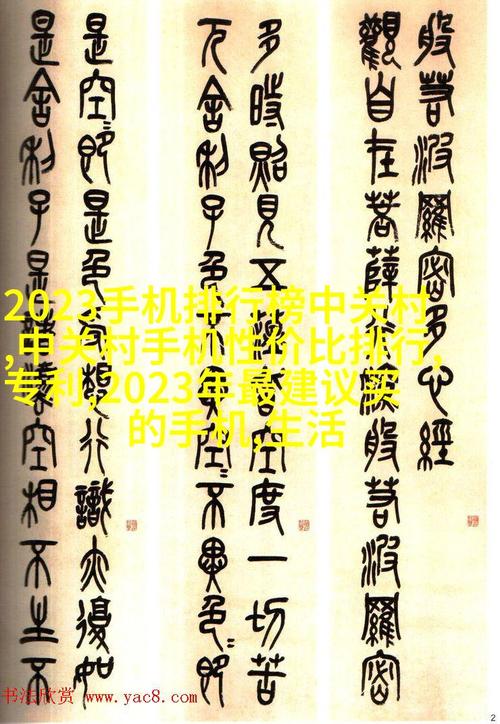 般若波羅密多心經
觀自在菩薩行深般若波羅密
多時照見五蘊皆空度一切苦
厄舍利子色不異空〻不異色〻即
是空〻即是色受想行識亦復如
是舍利子是諸法空相不生不
2023手机排行榜中关村
,中关村手机性价比排行,
专利,2023年最建议买
的手机,生活
书法欣赏 www.yac8.com
2